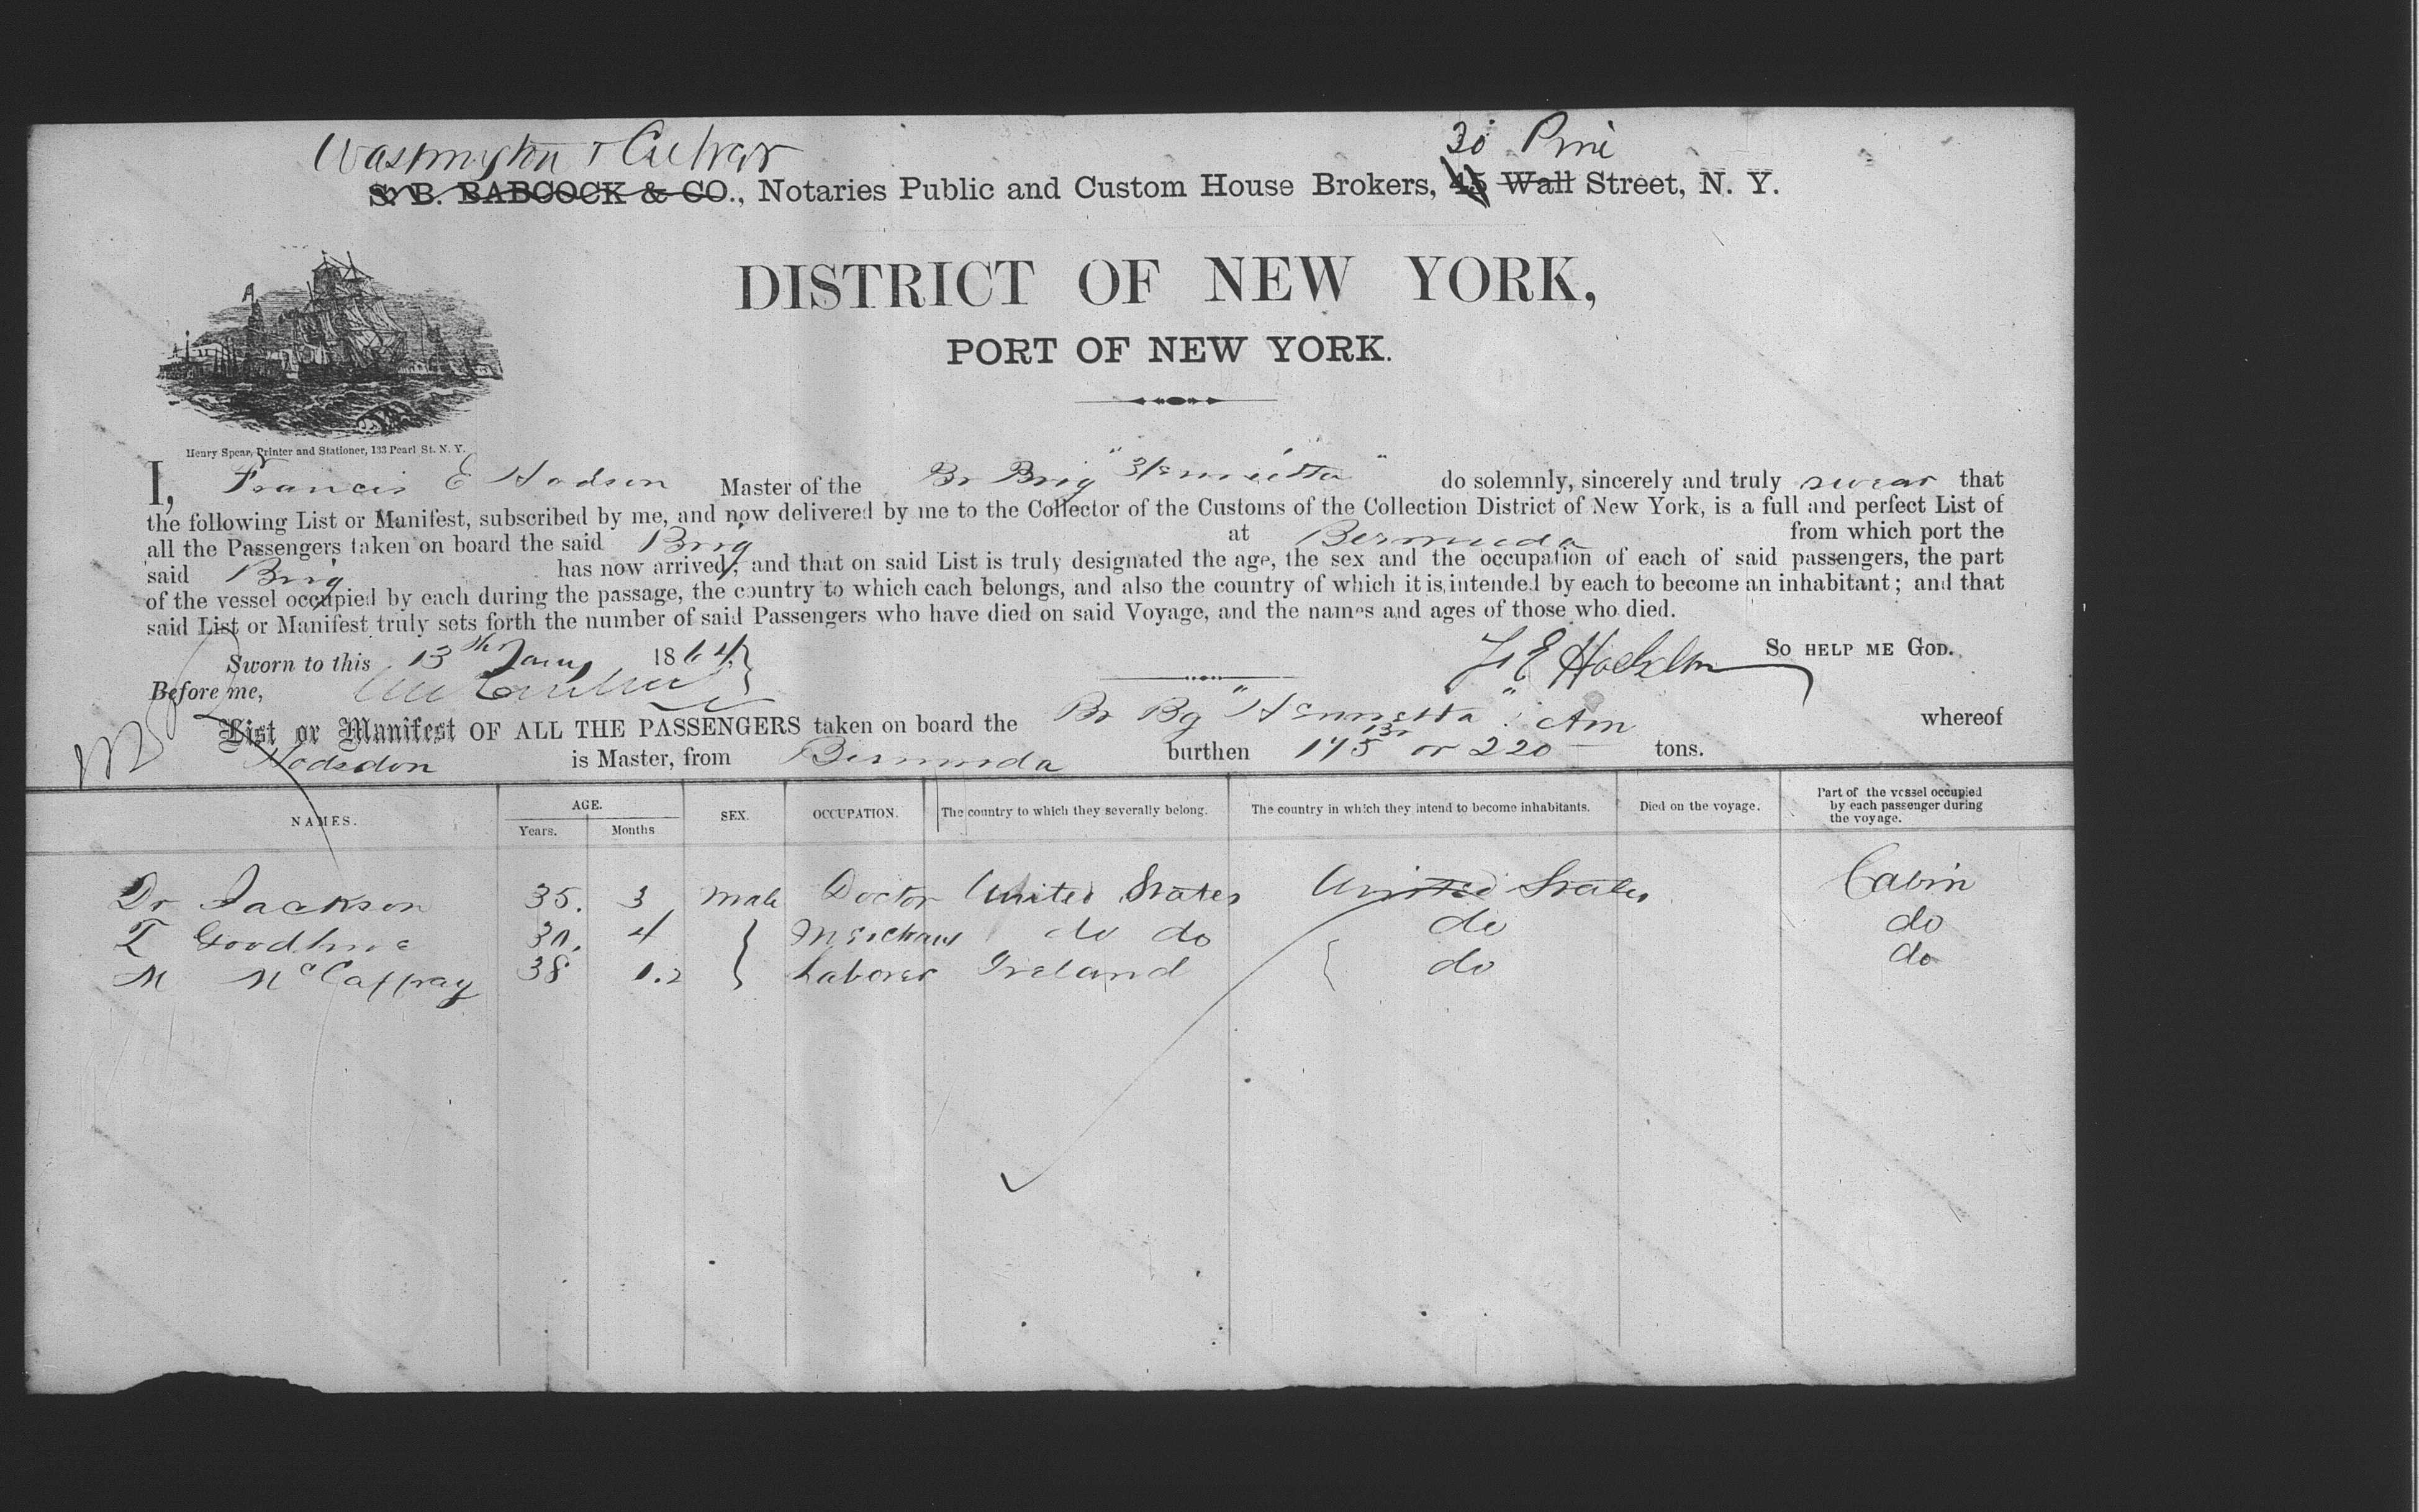 Washington & Culver 30 Pine
S. B. BABCOCK & CO., Notaries Public and Custom House Brokers, 45 Wall Street, N. Y.
DISTRICT OF NEW YORK,
PORT OF NEW YORK.
Henry Spear, Printer and Stationer, 133 Pearl St. N. Y.
I, Francis E Hodson Master of the Br Brig "Henrietta" do solemnly, sincerely and truly swear that
the following List or Manifest, subscribed by me, and now delivered by me to the Collector of the Customs of the Collection District of New York, is a full and perfect List of
all the Passengers taken on board the said Brig at Bermuda from which port the
said Brig has now arrived; and that on said List is truly designated the age, the sex and the occupation of each of said passengers, the part
of the vessel occupied by each during the passage, the country to which each belongs, and also the country of which it is intended by each to become an inhabitant; and that
said List or Manifest truly sets forth the number of said Passengers who have died on said Voyage, and the names and ages of those who died.
Sworn to this 13th Jany 1864 F E Hodsdon So help me God.
Before me,
List or Manifest OF ALL THE PASSENGERS taken on board the Br Bg "Henrietta" whereof
Hodsdon is Master, from Bermuda burthen 175 or 220 tons.
NAMES. AGE. Years. Months SEX. OCCUPATION. The country to which they severally belong. The country in which they intend to become inhabitants. Died on the voyage. Part of the vessel occupied by each passenger during the voyage.
Dr Jackson 35. 3 Male Doctor United States United States Cabin
T Goodhue 30. 4 Merchant do do do do
M McCaffray 38 1.2 Laborer Ireland do do